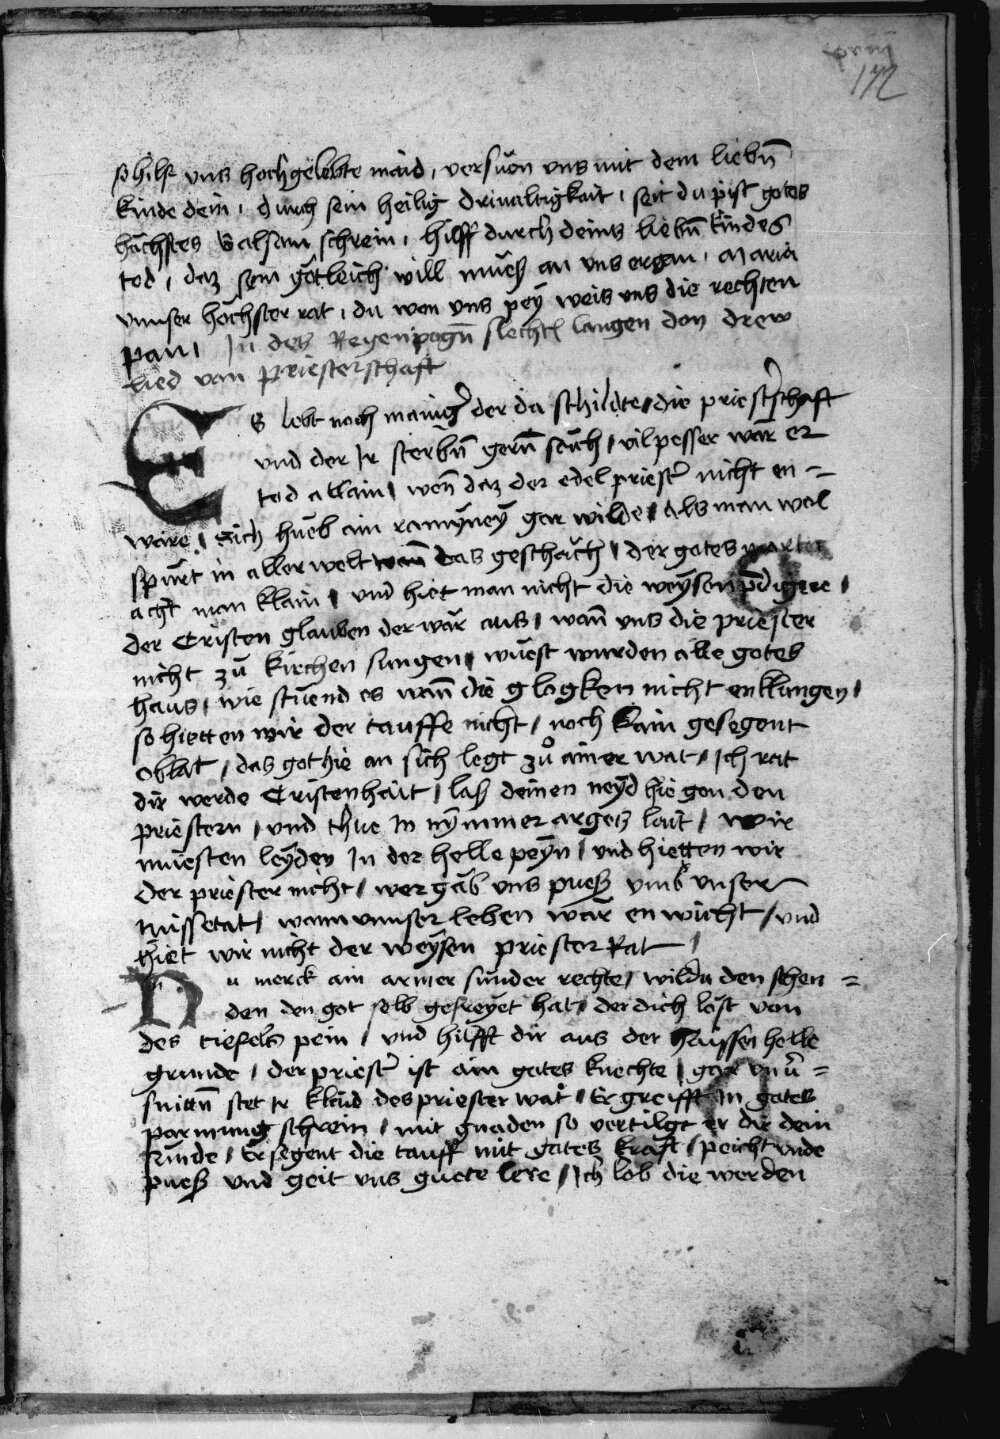 172
so hilf vns hochgelebte maid, versuon vns mit dem liebn̄
kinde dein, durch sein heilig drivaltigkait, seit du pist gotes
hächstes Balsam schrein, hilff durch deins liebn̄ kindes
tod, daz sein götleich will mueß an vns ergan, Maria
vnnser höchster rat, du won vns peÿ weis vns die rechten
pan, In des Regenpogn̄ slecht langen don drew
lied van Priesterschaft
Es lebt noch manig̉ der da schildte die priest̉schaft
vnd der Ir sterbn̄ gern̄ säch, vil pesser wär er
tod allain, wen̄ daz der edel priest̉ nicht en =
wäre, Sich hueb ain ramÿneÿ gar wilde, Als man wol
spürt in aller welt wan̄ das geschäch, der gotes marter
acht man klain, vnd hiet man nicht die weÿsen p̄digere,
der Cristen glauben der wär aus, wan̄ vns die priester
nicht zū kirchen sungen, wuest wurden alle gotes
haus, wie stuend es wan̄ die glogken nicht enklungen,
so hietten wir der tauffe nicht, noch kain gesegent
oblat, das got hie an sich legt zů ainer wat, Ich rat
dir werde Cristenhait, laß deinen neÿd hie gen den
priestern, vnd thue In nÿmmer arges lait, wir
muesten leÿden In der helle peÿn, vnd hietten wir
der priester nicht, wer gäb vns pueß vmb vnser
missetat, wann vnnser leben wär enwicht, vnd
hiet wir nicht der weÿsen priester Rat,
Nu merck ain armer sunder rechte, wildu den schen =
den den got selb gefreyet hat, der dich löst von
des tiefels pein, vnd hilfft dir aus der haissen helle
grunde, der priest̉ ist ain gotes knechte, gar vnu̓ =
snittn̄ stet Ir klaid des priester wat, Er greifft In gotes
parmung schrein, mit gnaden so vertilgt er dir dein
sunde, Er segent die tauff mit gotes kraft, peicht vnde
pueß vnd geit vns guete lere, Ich lob die werden